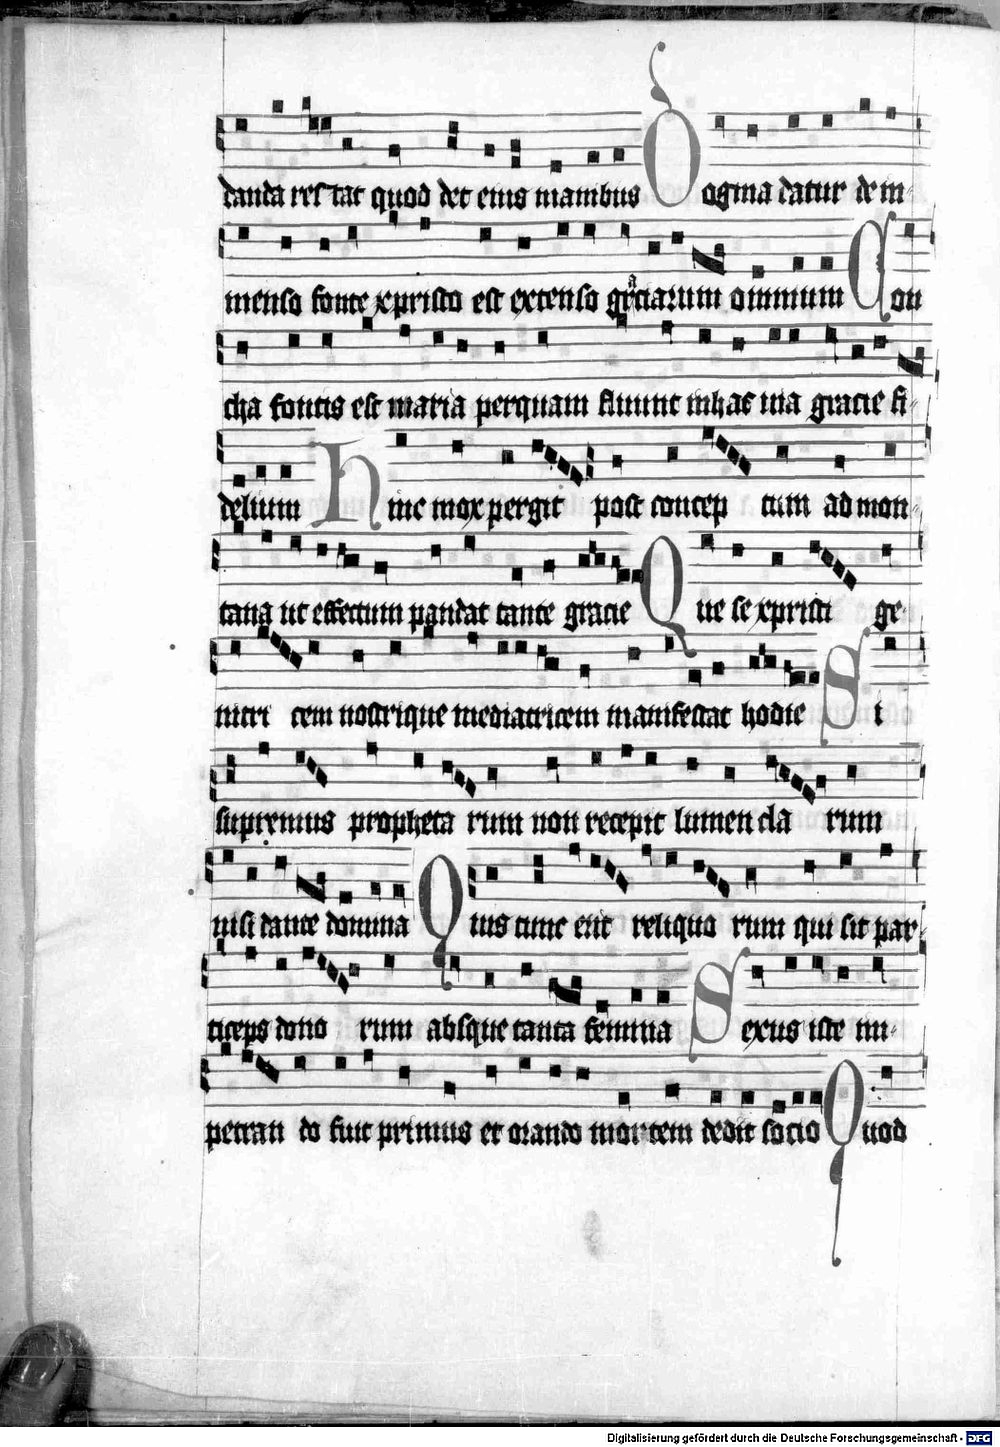 danda res tat quod det eius manibus Dogma datur de in-
menso fonte xpristo est extenso graciarum omnium Con
cha fontis est maria per quam fluunt in hac via gracie fi-
delium Hinc mox pergit post concep tum ad mon-
tana ut effectum pandat tante gracie Que se xpristi ge-
nitri cem nostrique mediatricem manifestat hodie Si
supremus propheta rum non recepit lumen cla rum
nisi dante domina Quis tunc erit reliquo rum qui sit par-
ticeps dono rum absque tanta femina Sexus iste im-
petran do fuit primus et orando mortem dedit socio Quod
Digitalisierung gefördert durch die Deutsche Forschungsgemeinschaft - DFG